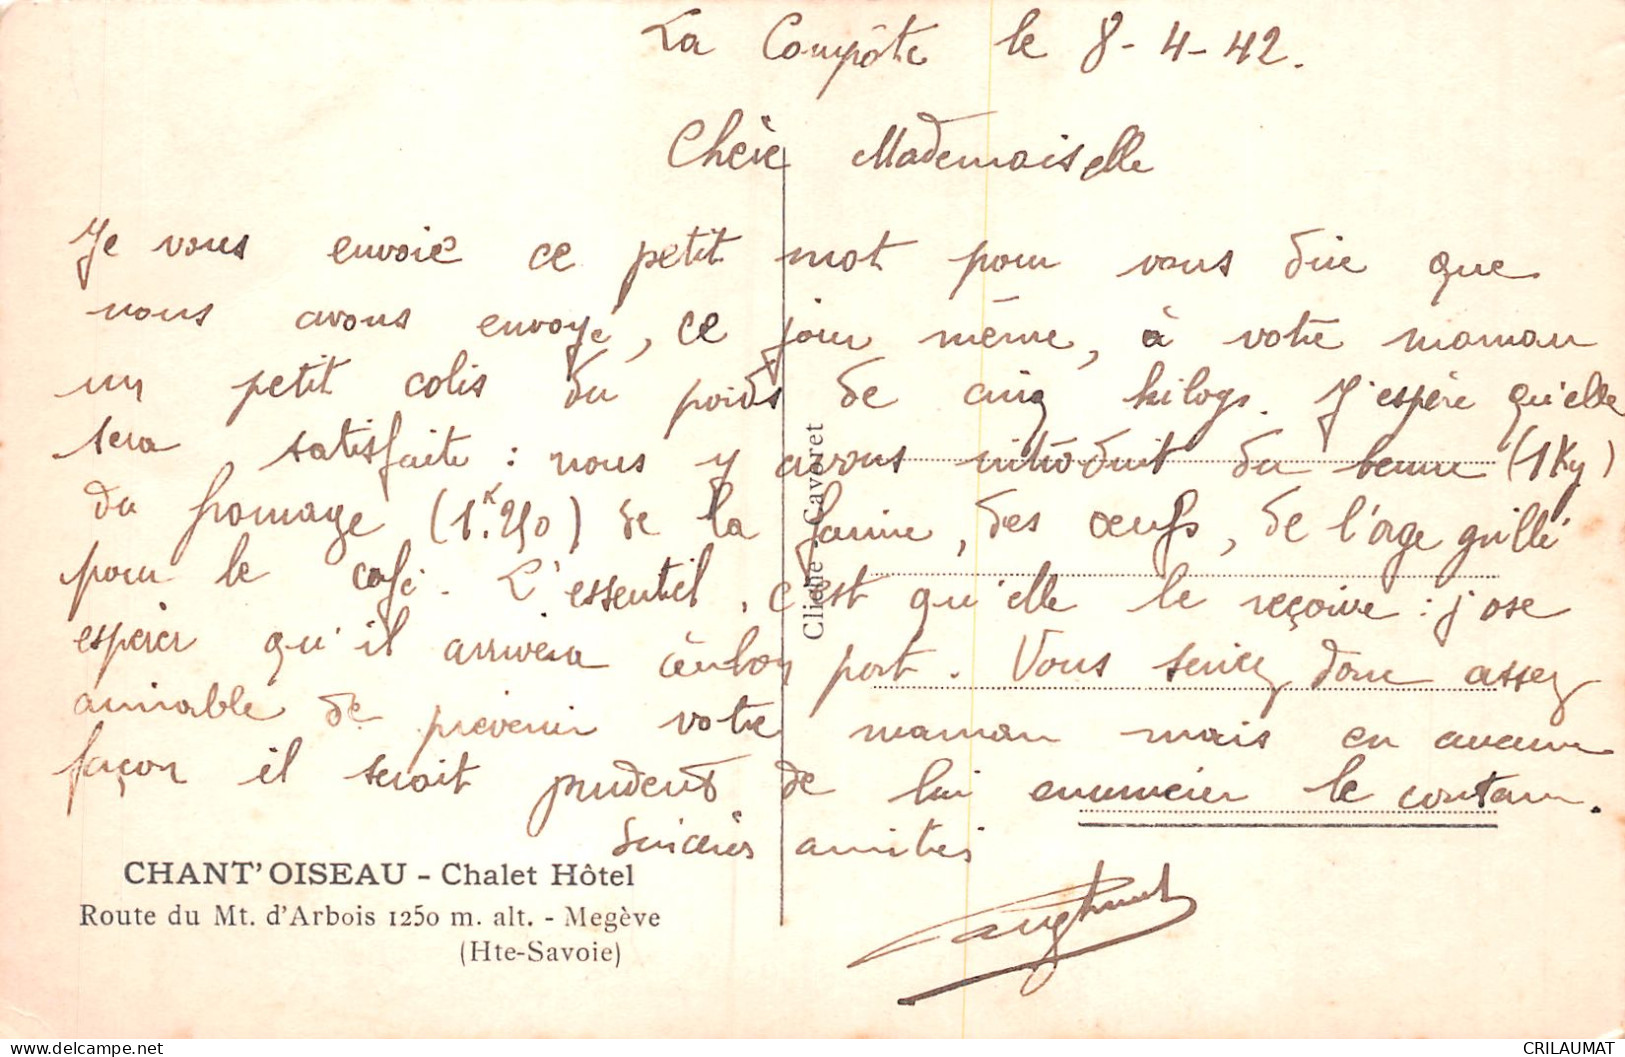 La Compôte le 8-4-42.
Chère Mademoiselle
Je vous envoie ce petit mot pour vous dire que
nous avons envoyé, ce jour même, à votre maman
un petit colis du poids de cinq kilogs. J'espère qu'elle
sera satisfaite : nous y avons introduit du beurre (1Kg)
du fromage (1.K250) de la farine, des oeufs, de l'orge grillé
pour le café. L'essentiel, c'est qu'elle le reçoive : j'ose
espérer qu'il arrivera à bon port. Vous seriez donc assez
aimable de prévenir votre maman mais en aucune
façon il serait prudent de lui énumérer le contenu.
Sincères amitiés
Cliché Cavoret
CHANT'OISEAU - Chalet Hôtel
Route du Mt. d'Arbois 1250 m. alt. - Megève
(Hte-Savoie)
CRILAUMAT